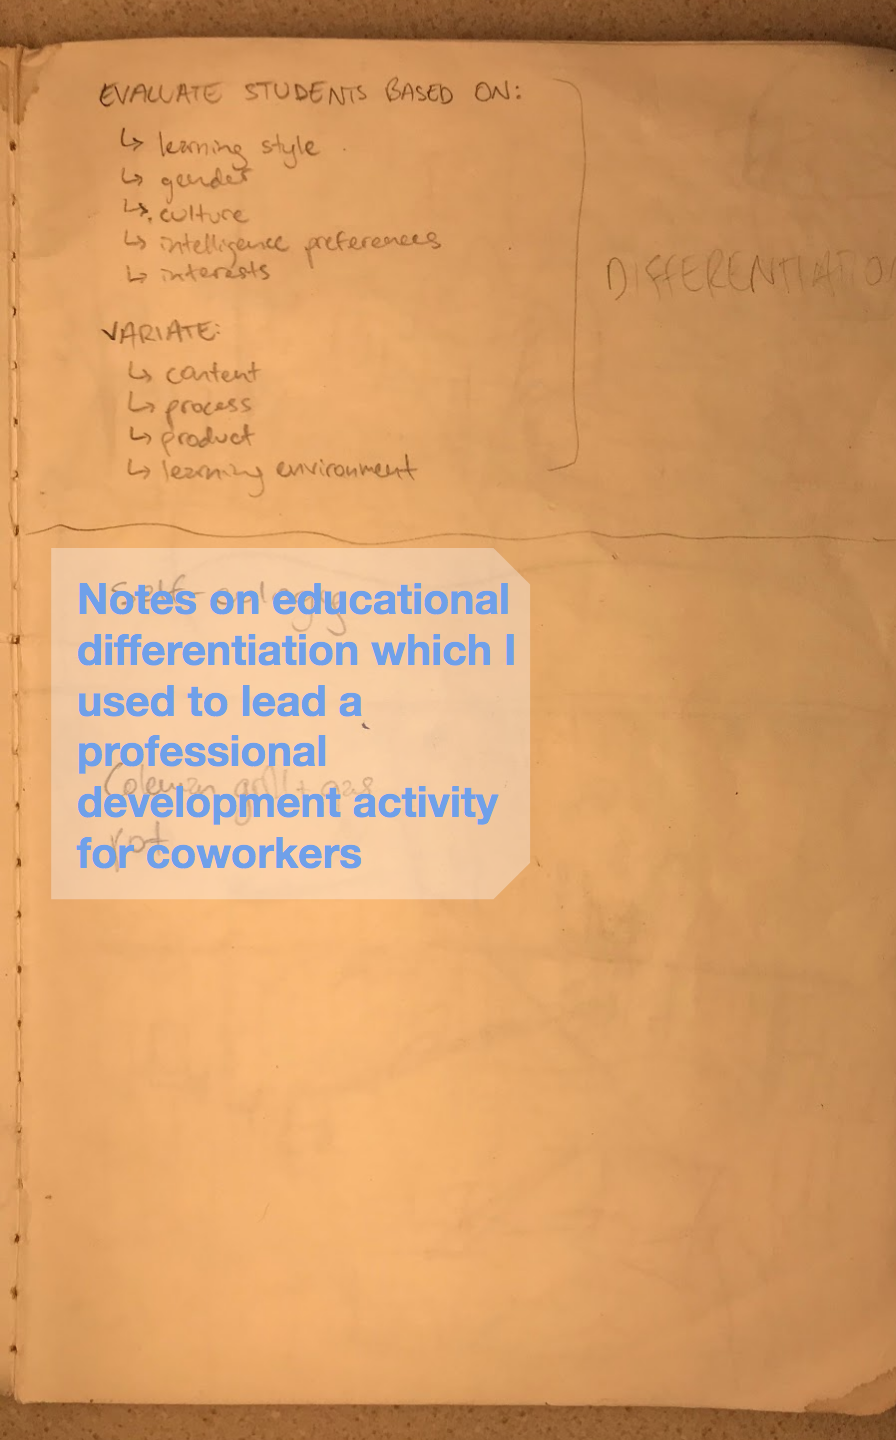 EVALUATE STUDENTS BASED ON:
↳ learning style
↳ gender
↳ culture
↳ intelligence preferences
↳ interests
DIFFERENTIATION
VARIATE:
↳ content
↳ process
↳ product
↳ learning environment
Self-eulogy
Notes on educational
differentiation which I
used to lead a
professional
development activity
for coworkers
Coleman grill + gas